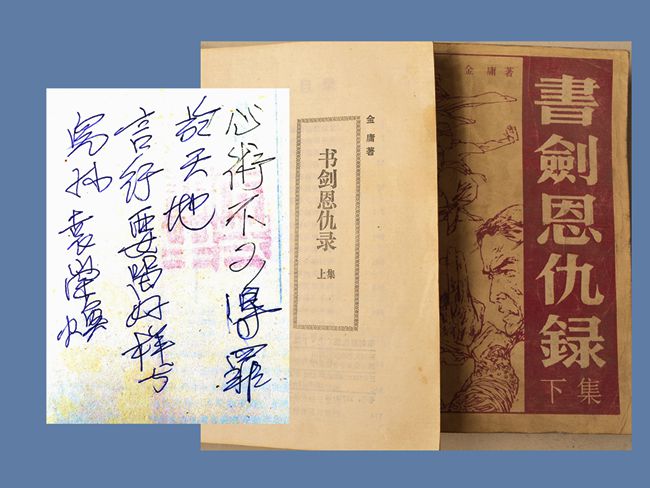 心術不可得罪
於天地
言行要留好樣与
金庸著
书剑恩仇录
上集
金庸著
書劍恩仇録
下集